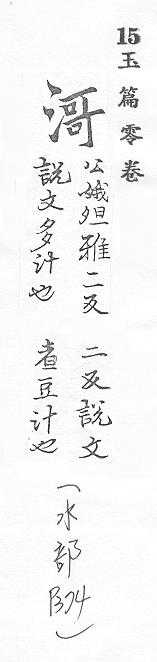 15玉篇零卷
滒
公娥亱雅二反 二反說文
說文多汁也 煮豆汁也
(水部B94)